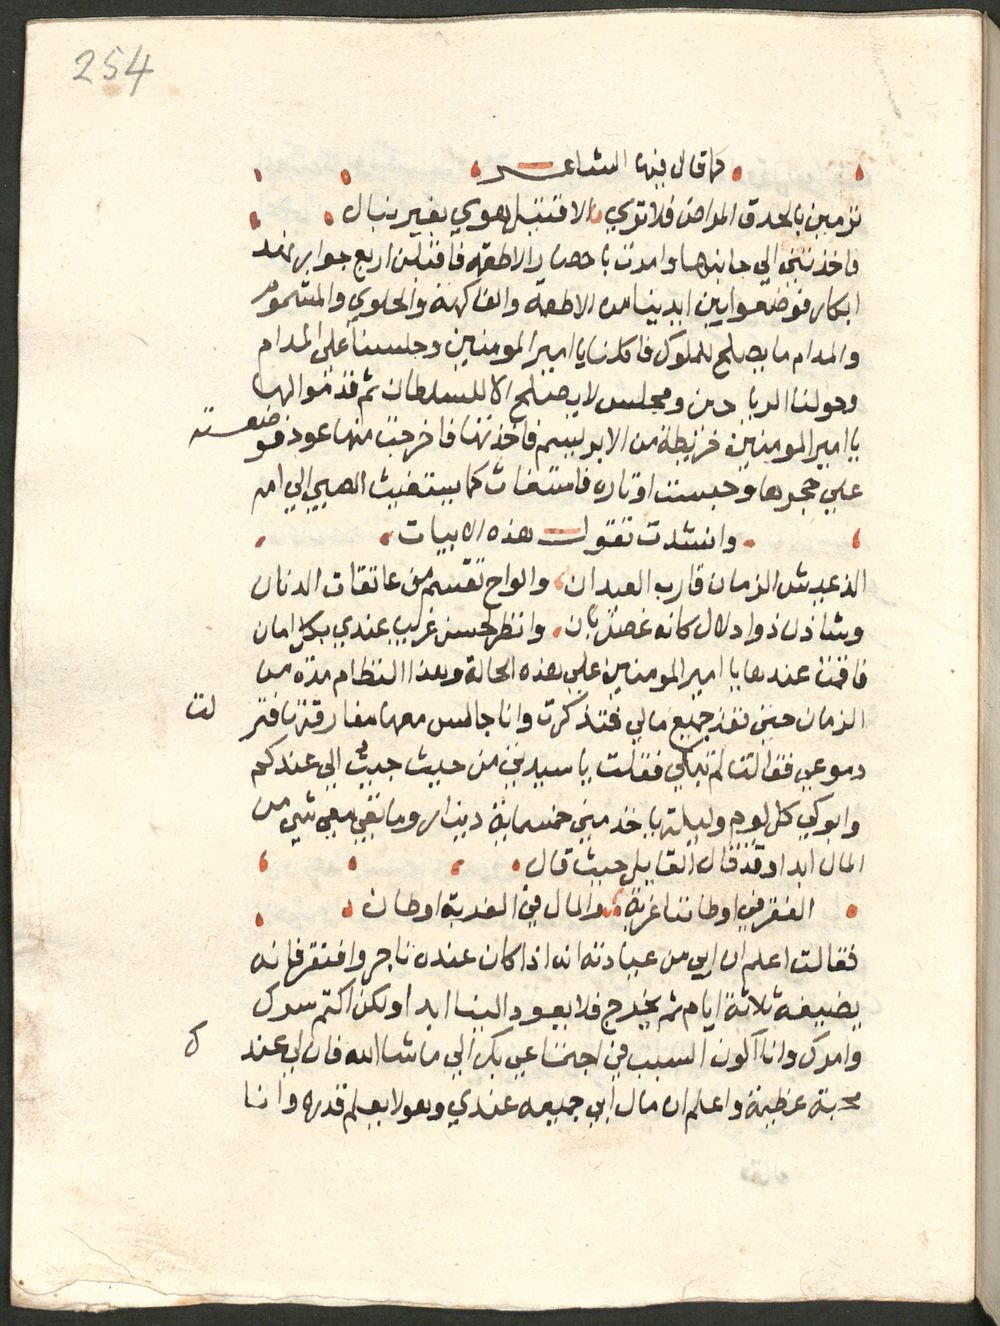 254
كما قال فيها الشاعر
ترمين بالحدق المراض فلا تري الا قتيل هوي بغير نبال
فاخذتني الي جانبها وامرت باحضار الاطعمه فاقبلن اربع جوار نهد
ابكار فوضعوا بين ايدينا من الاطعمة والفاكهة والحلوي والمشموم
والمدام ما يصلح للملوك فاكلنا يا امير المومنين وجلسنا علي المدام
وحولنا الرياحين ومجلس لا يصلح الا للسلطان ثم قدموا لها
يا امير المومنين خريطة من الابريسم فاخذتها فاخرجت منها عود فوضعته
علي حجرها وجست اوتاره فاستغاث كما يستغيث الصبي الي امه
وانشدت تقول هذه الابيات
الذ عيش الزمان قارب العيدان والواح تقسم من عاتقات الدنان
وشادن ذوا دلال كانه غصن بان وانظر لحسن غريب عندي بكل امان
فاقمت عندها يا امير المومنين علي هذه الحالة وهذا النظام مدة من
الزمان حتي نفد جميع مالي فتذكرت وانا جالس معها مفارقتها فنزلت
دموعي فقالت لم تبكي فقلت يا سيدتي من حيث جيت الي عندكم
وابوكي كل يوم وليلة ياخذ مني خمسماية دينار وما بقي معي شي من
المال ابدا وقد قال القايل حيث قال
الفقر في اوطاننا غربة والمال في الغربة اوطان
فقالت اعلم ان ابي من عادته انه اذا كان عنده تاجر وافتقر فانه
يضيفه ثلاثة ايام ثم يخرج فلا يعود الينا ابدا ولكن اكتم سرك
وامرك وانا اكون السبب في اجتماعي بك الي ما شا الله فان لي عندك
محبة عظيمة واعلم ان مال ابي جميعه عندي وهو لا يعلم قدره وانا